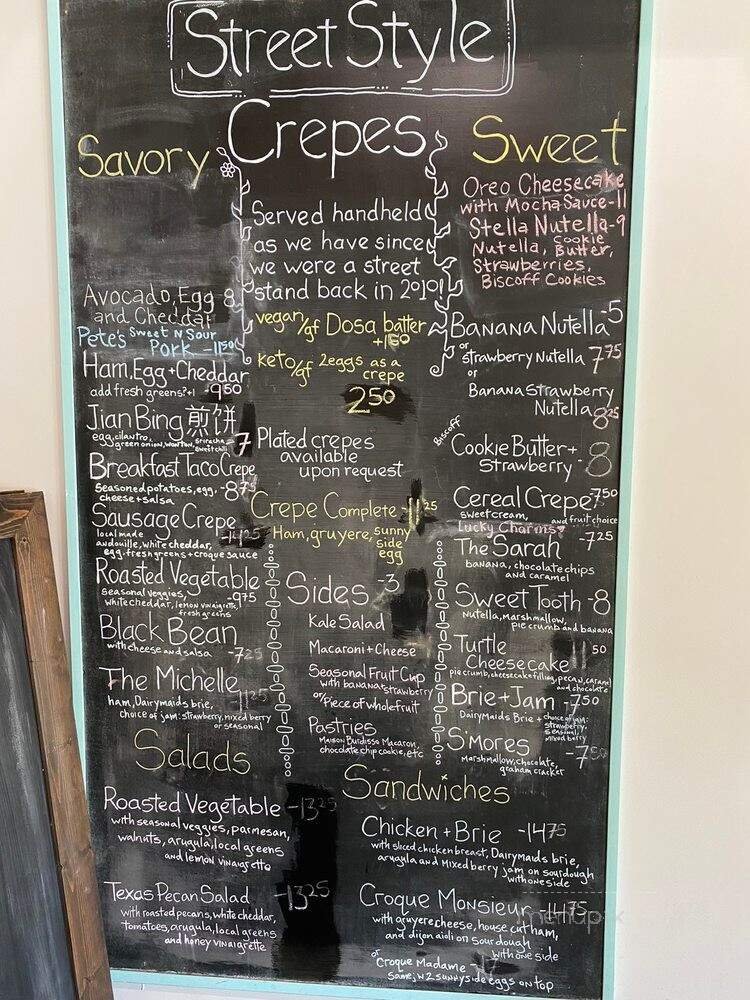 Street Style
Crepes
Savory
Avocado, Egg 8
and Cheddar
Pete's Sweet N Sour
Pork -1150
Ham, Egg + Cheddar
add fresh greens? +1 -950
Jian Bing 煎饼
egg, cilantro,
green onion, wonton, sriracha
sweet chili
-7
Breakfast Taco Crepe
seasoned potatoes, egg, -875
cheese + salsa
Sausage Crepe
local made -1425
andouille, white cheddar,
egg, fresh greens + croque sauce
Roasted Vegetable
seasonal veggies, -975
white cheddar, lemon vinaigrette,
fresh greens
Black Bean
with cheese and salsa -725
The Michelle
ham, Dairymaids brie, -1125
choice of jam: strawberry, mixed berry
or seasonal
Served handheld
as we have since
we were a street
stand back in 2010!
vegan/gf Dosa batter
+150
keto/gf 2eggs as a
crepe
250
Plated crepes
available
upon request
Crepe Complete -1125
Ham, gruyere, sunny
side
egg
Sides -3
Kale Salad
Macaroni + Cheese
Seasonal Fruit Cup
with banana + strawberry
or/Piece of whole fruit
Pastries
Maison Burdisso Macaron,
chocolate chip cookie, etc
Sweet
Oreo Cheesecake
with Mocha Sauce -11
Stella Nutella -9
Nutella, Cookie
Butter,
Strawberries,
Biscoff Cookies
Banana Nutella -5
or
strawberry Nutella 775
or
Banana Strawberry
Nutella 825
Biscoff
Cookie Butter +
Strawberry -8
Cereal Crepe -750
sweet cream, and fruit choice
Lucky Charms?
The Sarah -725
banana, chocolate chips
and caramel
Sweet Tooth -8
Nutella, Marshmallow,
pie crumb and banana
Turtle
Cheesecake 1150
pie crumb, cheesecake filling, pecan, caramel
and chocolate
Brie + Jam -750
Dairymaids Brie + choice of jam:
strawberry,
seasonal,
mixed berry
S'mores -750
Marshmallow, chocolate,
graham cracker
Salads
Roasted Vegetable -1325
with seasonal veggies, parmesan,
walnuts, arugula, local greens
and lemon vinaigrette
Texas Pecan Salad -1325
with roasted pecans, white cheddar,
tomatoes, arugula, local greens
and honey vinaigrette
Sandwiches
Chicken + Brie -1475
with sliced chicken breast, Dairymaids brie,
arugula and mixed berry jam on sourdough
with one side
Croque Monsieur -1475
with gruyere cheese, house cut ham,
and dijon aioli on sourdough
with one side
or Croque Madame
Same, w 2 sunny side eggs on top